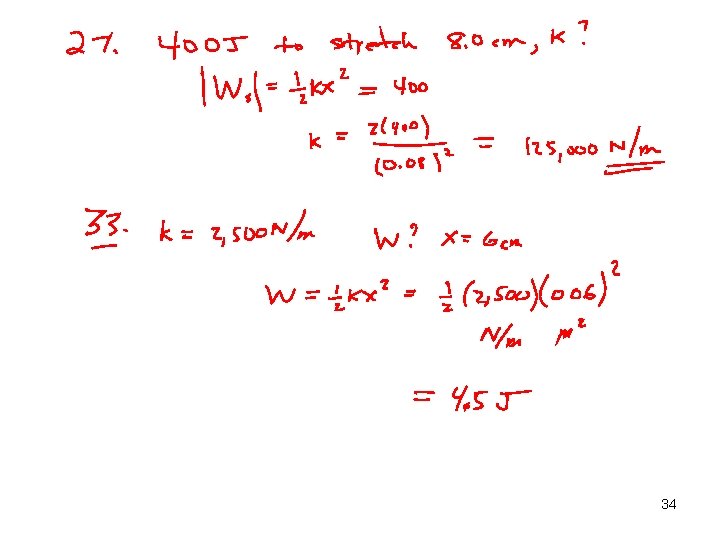 27. 400J to stretch 8.0 cm, k?
|Wₛ| = ½kx² = 400
k = 2(400)/(0.08)² = 125,000 N/m
33. k = 2,500 N/m W? x = 6cm
W = ½kx² = ½(2,500)(0.06)²
N/m m²
= 4.5 J
34